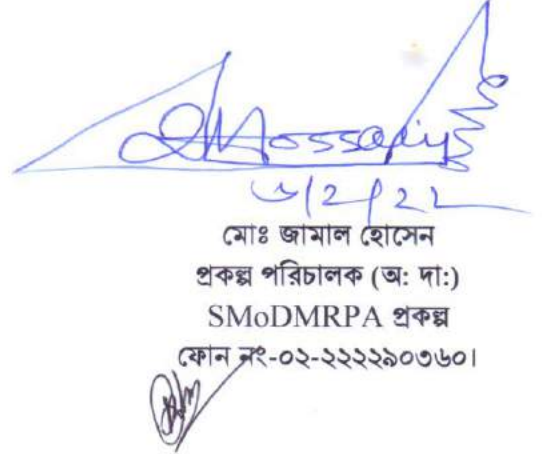 Hossain
মোঃ জামাল হোসেন
প্রকল্প পরিচালক (অ: দা:)
SMoDMRPA প্রকল্প
ফোন নং-০২-২২২২৯০৩৬০।